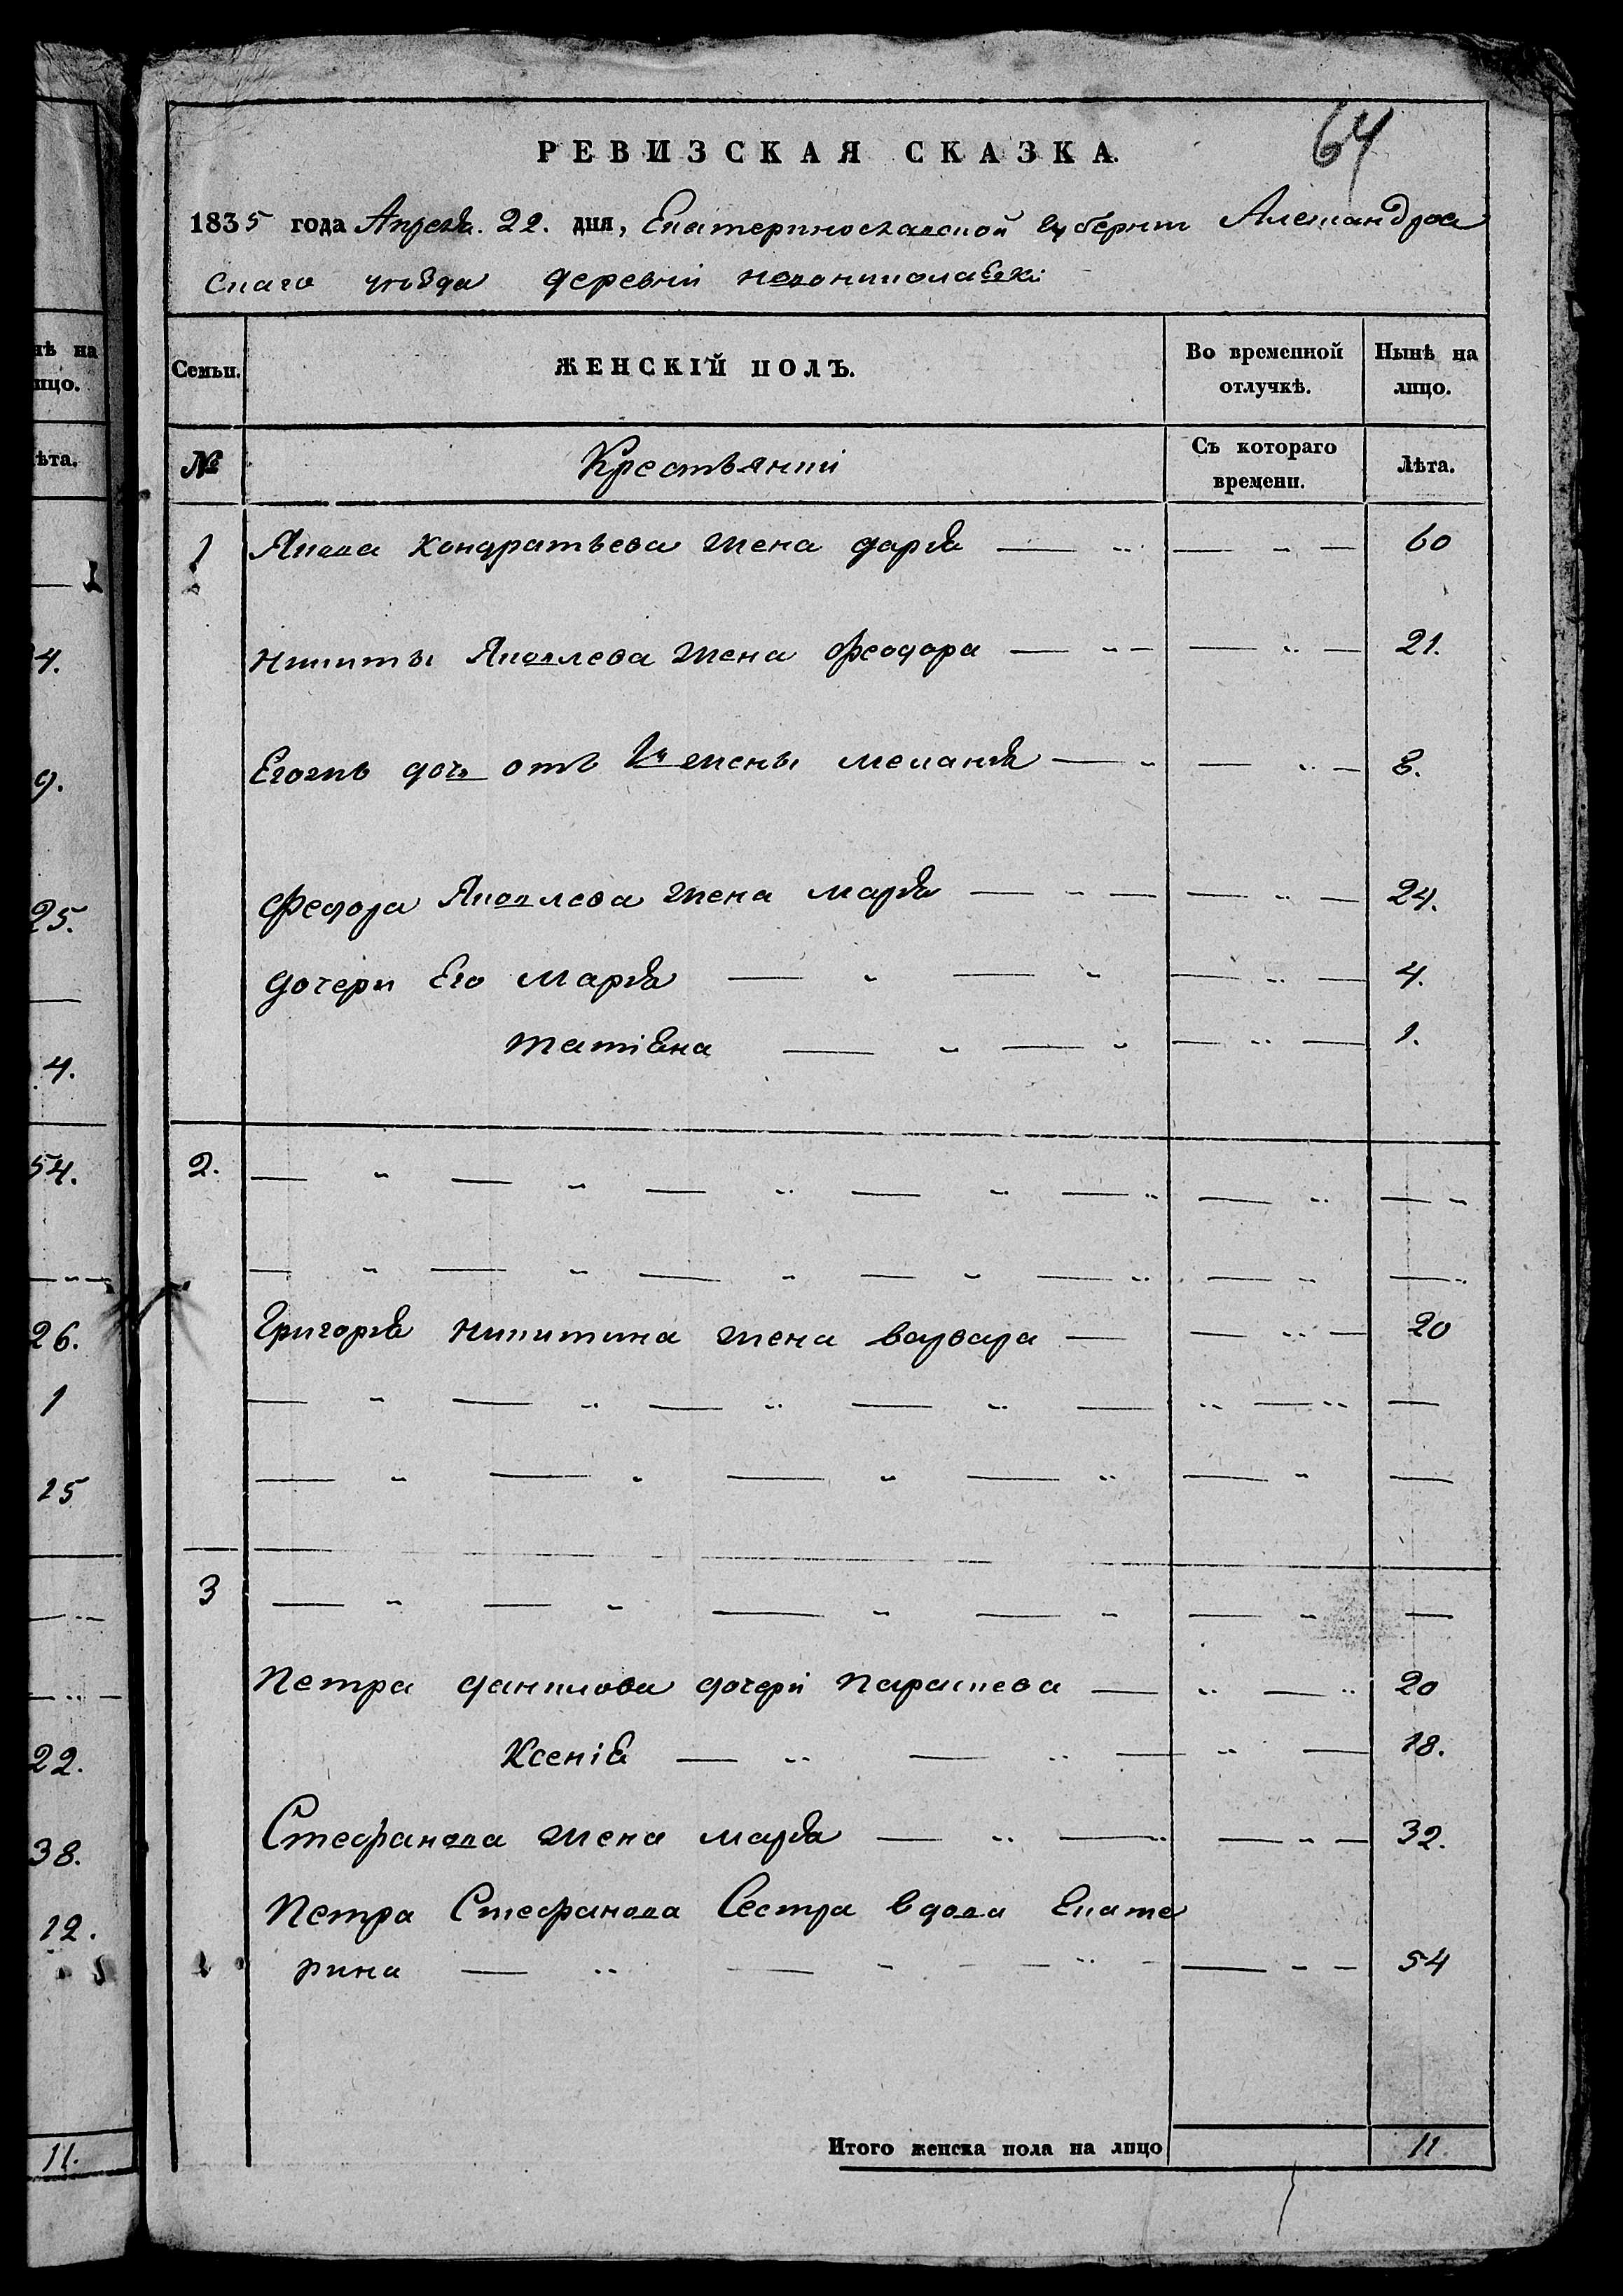 нѣ на
ицо.
ѣта.
1
4.
9.
25.
4.
54.
26.
1
15
22.
38.
12.
11.
64
РЕВИЗСКАЯ СКАЗКА.
1835 года Апреля. 22. дня, Екатеринославской губернии Александров
скаго уѣзда деревни новониколаевки
Семьи. ЖЕНСКІЙ ПОЛЪ. Во временной отлучкѣ. Нынѣ на лицо.
№ Крестьянки Съ котораго времени. Лѣта.
1 Якова Кондратьева жена дарья 60
никиты Яковлева жена Феодора 21.
Егожъ дочь отъ 1й жены меланья 8.
Федора Яковлева жена марья 24.
дочери Его марья 4.
татіяна 1.
2.
Григорья никитина жена варвара 20
3
Петра данилова дочери парасковея 20
Ксенія 18.
Стефанова жена марья 32.
Петра Стефанова Сестра вдова Екате
рина 54
Итого женска пола на лицо 11